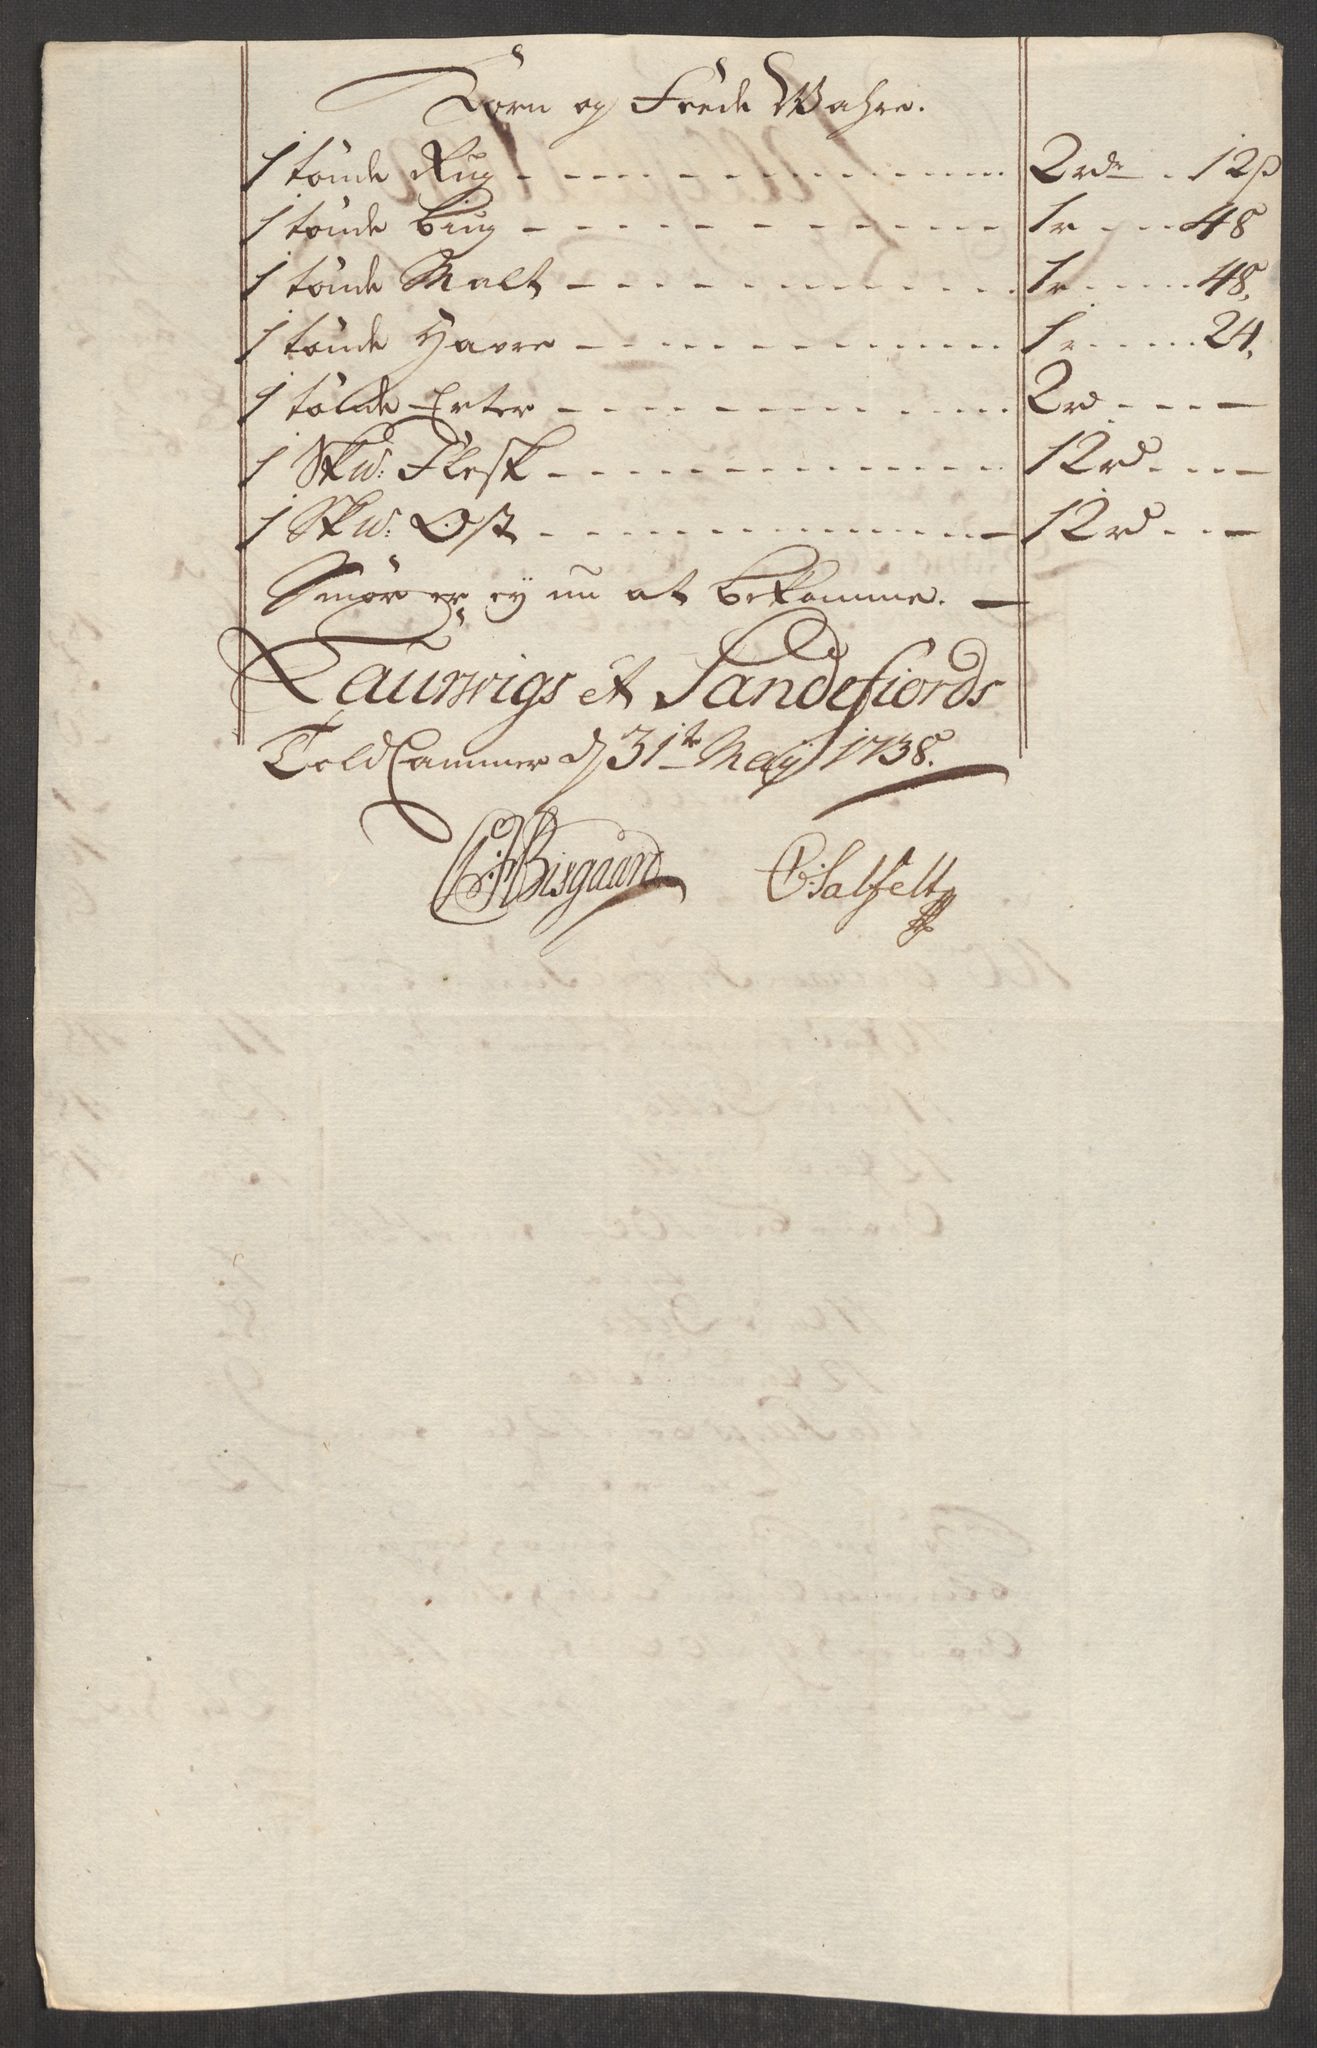 Korn og Feede Wahre.
1 tønde Rug - - - - 2 rdr . 12 s
1 tønde biug - - - - 1 r - - 48
1 tønde Malt - - - - 1 r - - 48.
1 tønde Havre - - - - 1 r - - 24.
1 tønde Erter - - - - 2 rd - - -
1 Skw: Flesk - - - - 12 rd - - -
1 Skw: Ost - - - - 12 rd - - -
Smør er ey nu at bekomme. -
Laurwigs et Sandefiords
Told Cammer d 31te Maij 1738.
Bisgaard C: Salfelt